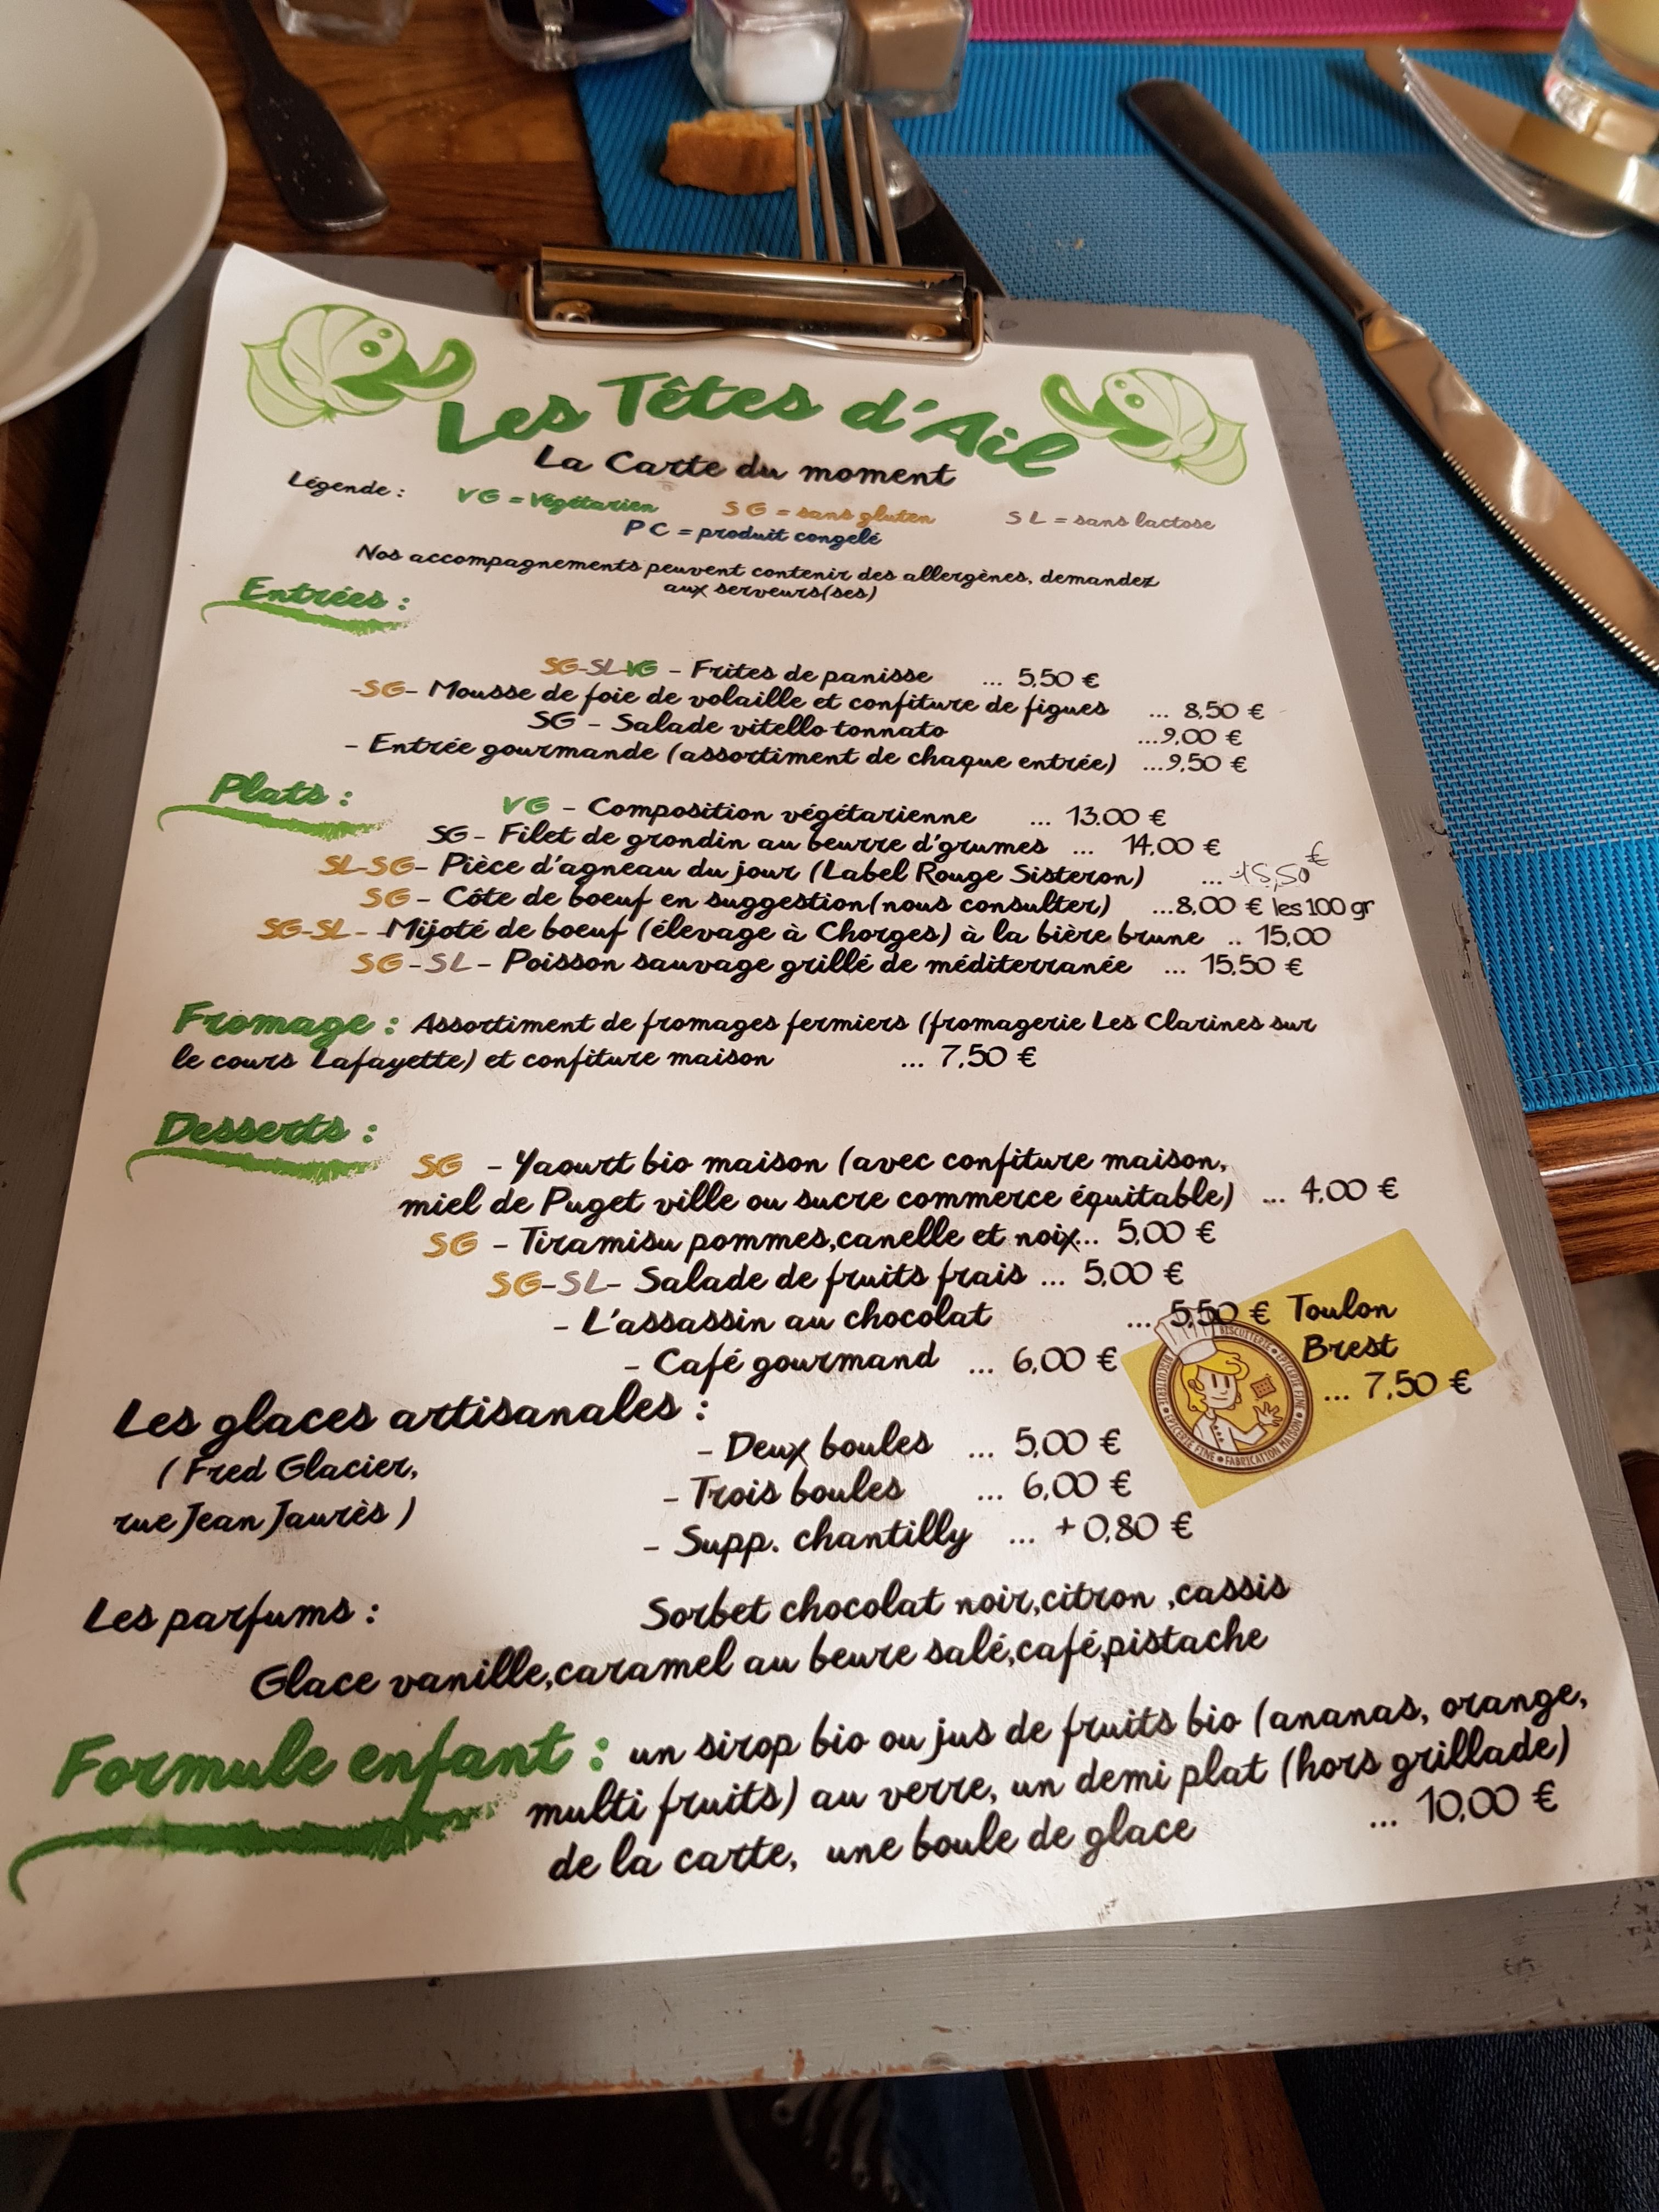 Les Têtes d'Ail
La Carte du moment
Légende : VG = Végétarien SG = sans gluten SL = sans lactose
PC = produit congelé
Nos accompagnements peuvent contenir des allergènes, demandez
aux serveurs(ses)
Entrées :
SG-SL-VG - Frites de panisse ... 5,50 €
-SG- Mousse de foie de volaille et confiture de figues ... 8,50 €
SG - Salade vitello tonnato ...9,00 €
- Entrée gourmande (assortiment de chaque entrée) ...9,50 €
Plats :
VG - Composition végétarienne ... 13.00 €
SG - Filet de grondin au beurre d'grumes ... 14,00 €
SL-SG- Pièce d'agneau du jour (Label Rouge Sisteron) ... 15,50 €
SG - Côte de boeuf en suggestion(nous consulter) ...8,00 € les 100 gr
SG-SL - Mijoté de boeuf (élevage à Chorges) à la bière brune .. 15,00
SG-SL - Poisson sauvage grillé de méditerranée ... 15,50 €
Fromage : Assortiment de fromages fermiers (fromagerie Les Clarines sur
le cours Lafayette) et confiture maison ... 7,50 €
Desserts :
SG - Yaourt bio maison (avec confiture maison,
miel de Puget ville ou sucre commerce équitable) ... 4,00 €
SG - Tiramisu pommes,canelle et noix... 5,00 €
SG-SL- Salade de fruits frais ... 5,00 €
- L'assassin au chocolat ... 5,50 €
Toulon
Brest
... 7,50 €
BISCUITERIE • EPICERIE FINE • FABRICATION MAISON • EPICERIE FINE • BISCUITERIE
- Café gourmand ... 6,00 €
Les glaces artisanales :
(Fred Glacier,
rue Jean Jaurès)
- Deux boules ... 5,00 €
- Trois boules ... 6,00 €
- Supp. chantilly ... +0,80 €
Les parfums : Sorbet chocolat noir,citron ,cassis
Glace vanille,caramel au beure salé,café,pistache
Formule enfant : un sirop bio ou jus de fruits bio (ananas, orange,
multi fruits) au verre, un demi plat (hors grillade)
de la carte, une boule de glace ... 10,00 €